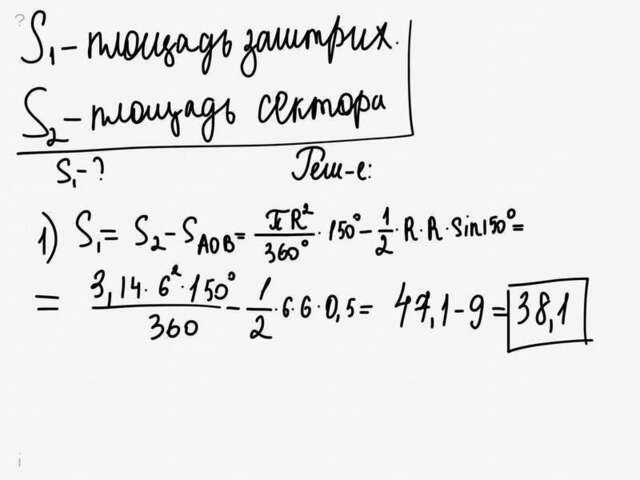 ?
S₁ – площадь заштрих.
S₂ – площадь сектора
S₁ – ? Реш-е:
1) S₁ = S₂ – S_AOB = πR²/360° · 150° – 1/2 · R · R · Sin150° =
= 3,14 · 6² · 150°/360 – 1/2 · 6 · 6 · 0,5 = 47,1 – 9 = 38,1
i